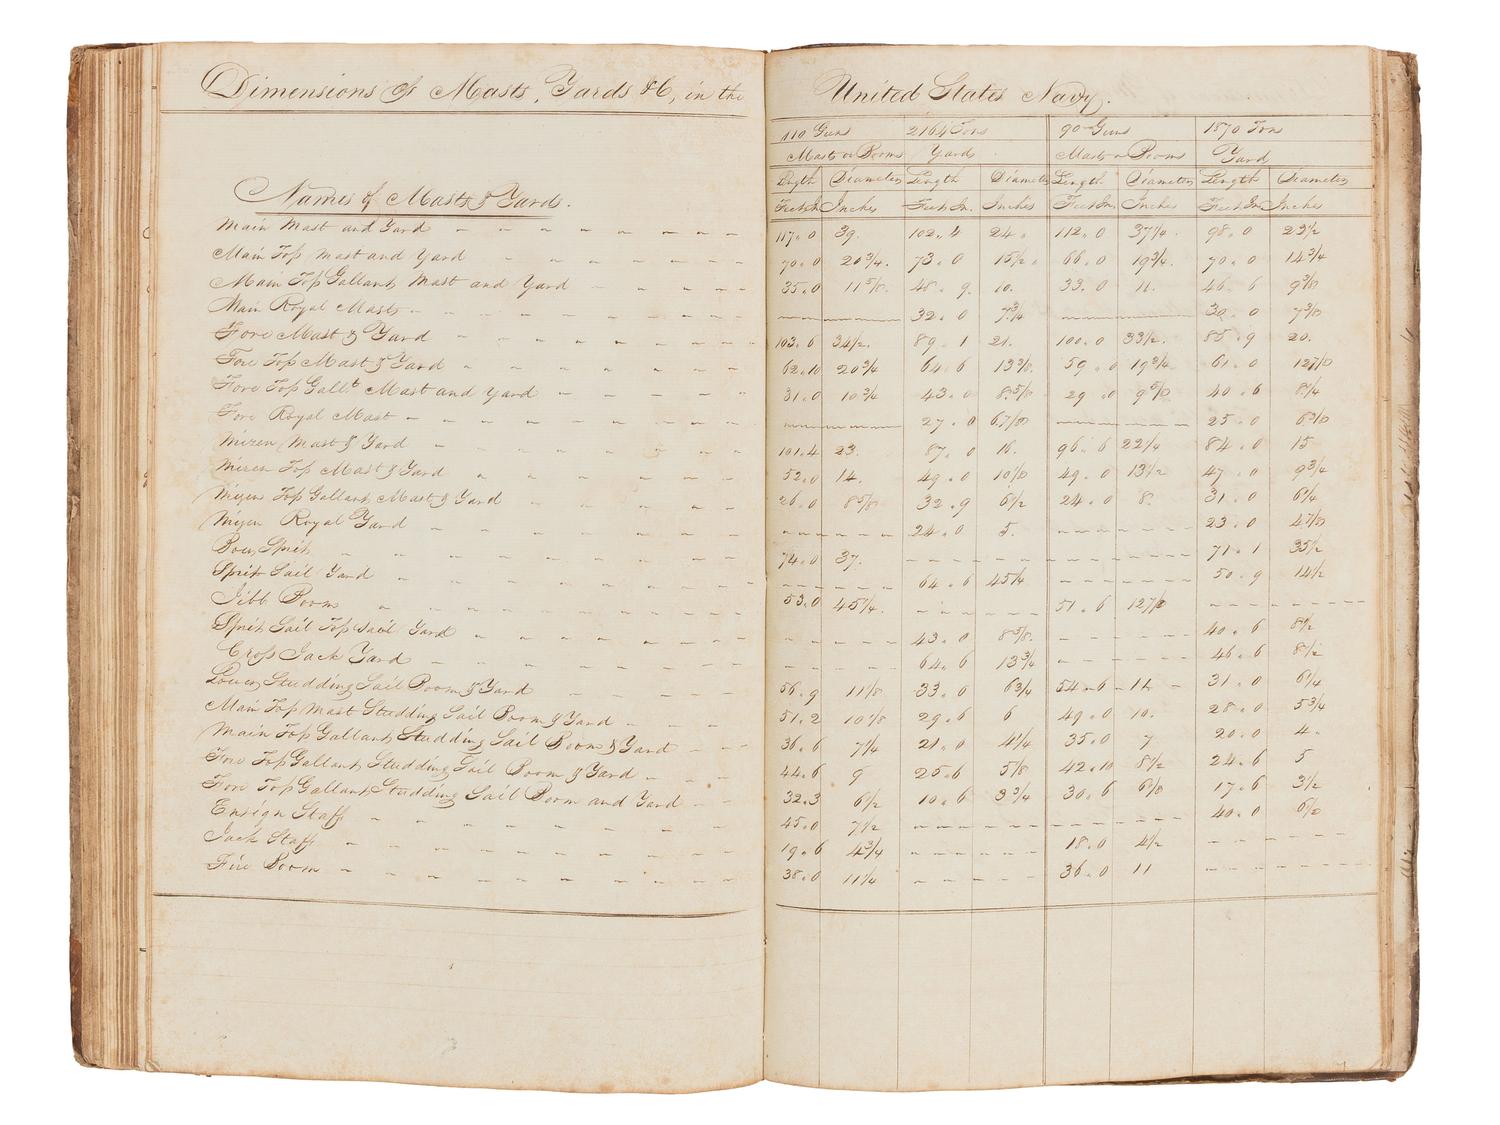 Dimensions of Masts, Yards &C, in the United States Navy.
110 Guns 2164 Tons 90 Guns 1870 Tons
Mast or Booms Yards Masts or Booms Yard
Names of Masts & Yards. Length Diameter Length Diameter Length Diameter Length Diameter
Feet In Inches Feet In. Inches Feet In. Inches Feet In Inches
Main Mast and Yard 117.0 39. 102.4 24. 112.0 37 1/4. 98.0 23 1/2
Main Top mast and Yard 70.0 20 3/4. 73.0 15 1/2. 66.0 19 3/4. 70.0 14 3/4
Main Top Gallant Mast and Yard 35.0 11 5/8. 48.9. 10. 33.0 11. 46.6 9 3/8
Main Royal Mast 32.0 7 3/4 30.0 7 3/8
Fore Mast & Yard 103.6 34 1/2. 89.1 21. 100.0 33 1/2. 85.9 20.
Fore Top Mast & Yard 62.10 20 3/4 64.6 13 3/8. 59.0 19 3/4 61.0 12 7/8
Fore Top Gallt Mast and Yard 31.0 10 3/4 43.0 8 5/8 29.0 9 5/8 40.6 8 1/4
Fore Royal Mast 27.0 6 7/8 25.0 6 3/8
Mizen Mast & Yard 101.4 23. 87.0 16. 96.6 22 1/4 84.0 15
Mizen Top Mast & Yard 52.0 14. 49.0 10 1/8 49.0 13 1/2 47.0 9 3/4
Mizen Top Gallant Mast & Yard 26.0 8 5/8 32.9 6 1/2 24.0 8. 31.0 6 1/4
Mizen Royal Yard 24.0 5. 23.0 4 7/8
Bow Sprit 74.0 37. 71.1 35 1/2
Sprit Sail Yard 64.6 45 1/4 50.9 14 1/2
Jibb Boom 53.0 45 1/4. 51.6 12 7/8
Sprit Sail Top Sail Yard 43.0 8 5/8. 40.6 8 1/2
Cross Jack Yard 64.6 13 3/4 46.6 8 1/2
Lower Studding Sail Boom & Yard 56.9 11 1/8 33.0 6 3/4 54.6 11 31.0 6 1/4
Main Top Mast Studding Sail Boom & Yard 51.2 10 1/8 29.6 6 49.0 10. 28.0 5 3/4
Main Top Gallant Studding Sail Boom & Yard 36.6 7 1/4 21.0 4 1/4 35.0 7 20.0 4.
Fore Top Gallant Studding Sail Boom & Yard 44.6 9 25.6 5 1/8 42.10 8 1/2 24.6 5
Fore Top Gallant Studding Sail Boom and Yard 32.3 6 1/2 10.6 3 3/4 30.6 6 1/8 17.6 3 1/2
Ensign Staff 45.0 7 1/2 40.0 6 1/2
Jack Staff 19.6 4 3/4 18.0 4 1/2
Fire Boom 38.0 11 1/4 36.0 11